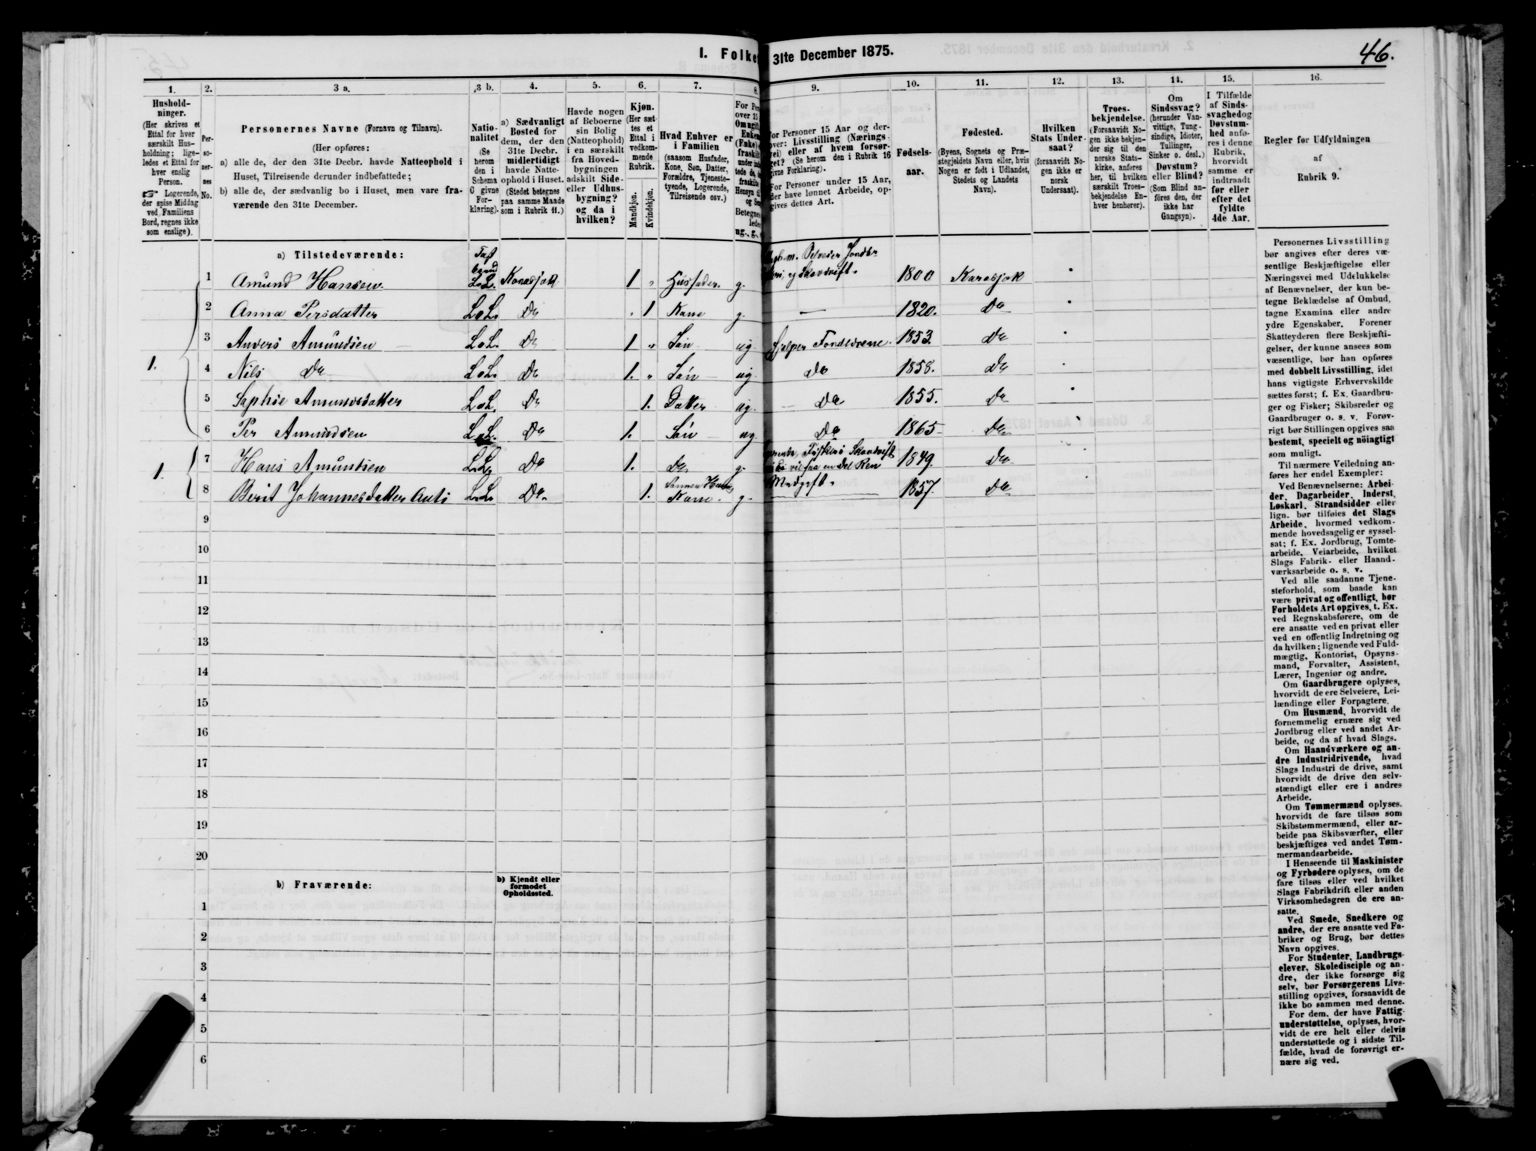 46.
I. Folke 31te December 1875.
1. 2. 3 a. 3 b. 4. 5. 6. 7. 8. 9. 10. 11. 12. 13. 14. 15. 16.
Hushold-
ninger.
(Her skrives et
Ettal for hver
særskilt Hus-
holdning; lige-
ledes et Ettal for
hver enslig
Person.
Logerende,
der spise Middag
ved Familiens
Bord, regnes ikke
som enslige).
Per-
so-
ner-
nes
No.
Personernes Navne (Fornavn og Tilnavn).
(Her opføres:
a) alle de, der den 31te Decbr. havde Natteophold i
Huset, Tilreisende derunder indbefattede;
b) alle de, der sædvanlig bo i Huset, men vare fra-
værende den 31te December.
Natio-
nalitet
(Se
herom
den i
Schema
C givne
For-
klaring).
a) Sædvanligt
Bosted for
dem, der den
31te Decbr.
midlertidigt
havde Natte-
ophold i Huset.
(Stedet betegnes
paa samme Maade
som i Rubrik 11.)
Havde nogen
af Beboerne
sin Bolig
(Natteophold)
i en særskilt
fra Hoved-
bygningen
adskilt Side-
eller Udhus-
bygning?
og da i
hvilken?
Kjøn.
(Her sæt-
tes et
Ettal i
vedkom-
mende
Rubrik.
Mandkjøn.
Kvindekjøn.
Hvad Enhver er
i Familien
(saasom Husfader,
Kone, Søn, Datter,
Forældre, Tjeneste-
tyende, Logerende,
Tilreisende osv.)
Fødsels-
aar.
Fødested.
(Byens, Sognets og Præ-
stegjeldets Navn eller, hvis
Nogen er født i Udlandet,
Stedets og Landets
Navn).
Hvilken
Stats Under-
saat?
(foransavidt No-
gen ikke er
norsk
Undersaat).
Troes-
bekjendelse.
(Forsaavidt No-
gen ikke bekjen-
der sig til den
norske Stats-
kirke, anføres
her, til hvilken
særskilt Troes-
bekjendelse En-
hver henhører).
Om
Sindssvag?
(herunder Van-
vittige, Tung-
sindige, Idioter,
Tullinger,
Sinker o. desl.)
Døvstum?
eller Blind?
(Som Blind an-
føres den, der
ikke har
Gangsyn).
I Tilfælde
af Sinds-
svaghed og
Døvstum-
hed anfø-
res i denne
Rubrik,
hvorvidt
samme er
indtraadt
før eller
efter det
fyldte
4de Aar.
Regler for Udfyldningen
af
Rubrik 9.
a) Tilstedeværende:
1 Amund Hansen Karasjok 1 Husfader g. 1800 Karasjok
2 Anna Persdatter L.L. Do 1 Kone g. — 1820. Do
3 Anders Amundsen L.L. Do 1 Søn ug. 1853. Do
4 Nils Do L.L. Do 1. Søn ug. Do 1858. Do
5 Amundsdatter L.L. Do 1. Datter ug. Do 1855. Do
6 Per Amundsen L.L. Do 1. Søn ug Do 1865 Do
7 Hans Amundsen L.L. Do 1. Do g. 1849. Do
8 Berit Johannesdatter L.L. Do. 1. Kone. g. 1857. Do
9
10
11
12
13
14
15
16
17
18
19
20
b) Fraværende:
b) Kjendt eller
formodet
Opholdssted.
1
2
3
4
5
6
Personernes Livsstilling
bør angives efter deres væ-
sentlige Beskjæftigelse eller
Næringsvei med Udelukkelse
af Benævnelser, der kun be-
tegne Beklædelse af Ombud,
tagne Examina eller andre
ydre Egenskaber. Forener
Skatteyderen flere Beskjæfti-
gelser, der kunne ansees som
væsentlige, bør han opføres
med dobbelt Livsstilling, idet
hans vigtigste Erhvervskilde
sættes først; f. Ex. Gaardbru-
ger og Fisker; Skibsreder og
Gaardbruger o. s. v. Forøv-
rigt bør Stillingen opgives saa
bestemt, specielt og nöiagtigt
som muligt.
Til nærmere Veiledning an-
føres her endel Exempler:
Ved Benævnelserne: Arbei-
der, Dagarbeider, Inderst,
Løskarl, Strandsidder eller
lign. bør tilføies det Slags
Arbeide, hvormed vedkom-
mende hovedsagelig er syssel-
sat; f. Ex. Jordbrug, Tomte-
arbeide, Veiarbeide, hvilket
Slags Fabrik- eller Haand-
værksarbeide o. s. v.
Ved alle saadanne Tjene-
steforhold, som baade kan
være privat og offentligt, bør
Forholdets Art opgives, t. Ex.
ved Regnskabsførere, om de
ere ansatte ved en privat eller
ved en offentlig Indretning og
da hvilken; lignende ved Fuld-
mægtig, Kontorist, Opsyns-
mand, Forvalter, Assistent,
Lærer, Ingeniør og andre.
Om Gaardbrugere oplyses,
hvorvidt de ere Selveiere, Lei-
lændinge eller Forpagtere.
Om Husmænd, hvorvidt de
fornemmelig ernære sig ved
Jordbrug eller ved andet Ar-
beide, og da af hvad Slags.
Om Haandværkere og an-
dre Industridrivende, hvad
Slags Industri de drive, samt
hvorvidt de drive den selv-
stændigt eller ere i andres
Arbeide.
Om Tømmermænd oplyses,
hvorvidt de fare tilsøs som
Skibstømmermænd, eller ar-
beide paa Skibsværfter, eller
beskjæftiges ved andet Tøm-
mermandsarbeide.
I Henseende til Maskinister
og Fyrbødere oplyses, om de
fare tilsøs eller ved hvilket
Slags Fabrikdrift eller anden
Virksomhedsgren de ere an-
satte.
Ved Smede, Snedkere og
andre, der ere ansatte ved Fa-
briker og Brug, bør dettes
Navn opgives.
For Studenter, Landbrugs-
elever, Skoledisciple og an-
dre, der ikke forsørge sig
selv, bør Forsørgerens Livs-
stilling opgives, forsaavidt de
ikke bo sammen med denne.
For dem, der have Fattig-
understøttelse, oplyses, hvor-
vidt de ere helt eller delvis
understøttede og i sidste Til-
fælde, hvad de forøvrigt er-
nære sig ved.